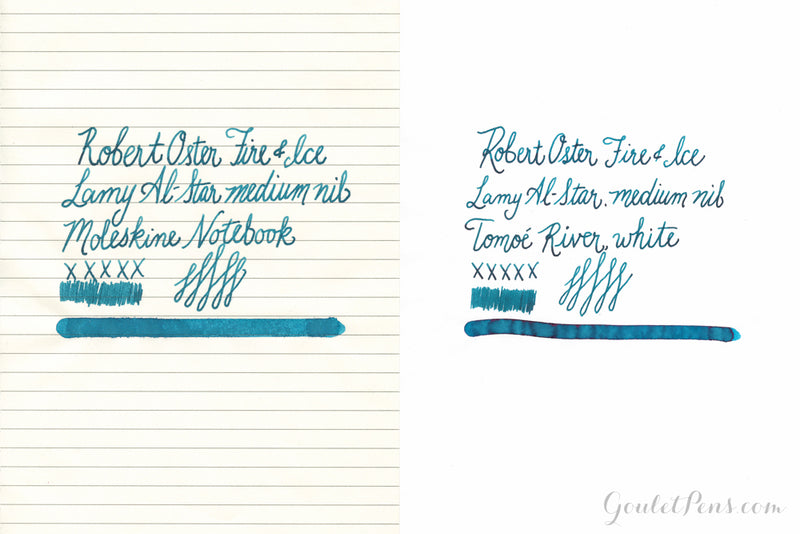 Robert Oster Fire & Ice
Lamy Al-Star medium nib
Moleskine Notebook
X X X X X
Robert Oster Fire & Ice
Lamy Al-Star. medium nib
Tomoé River, white
XXXXX
GouletPens.com